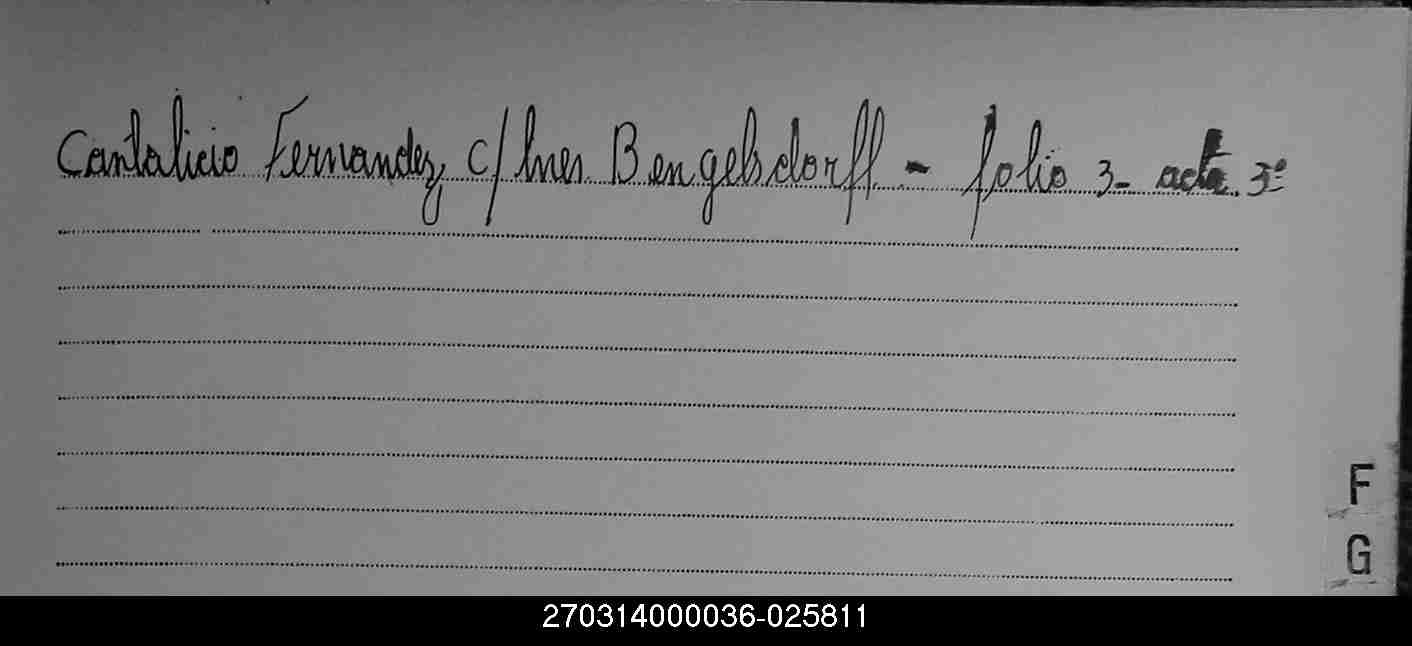 Cantalicio Fernandez c/ Ines Bengelsdorff - folio 3- acta 3º
F
G
270314000036-025811